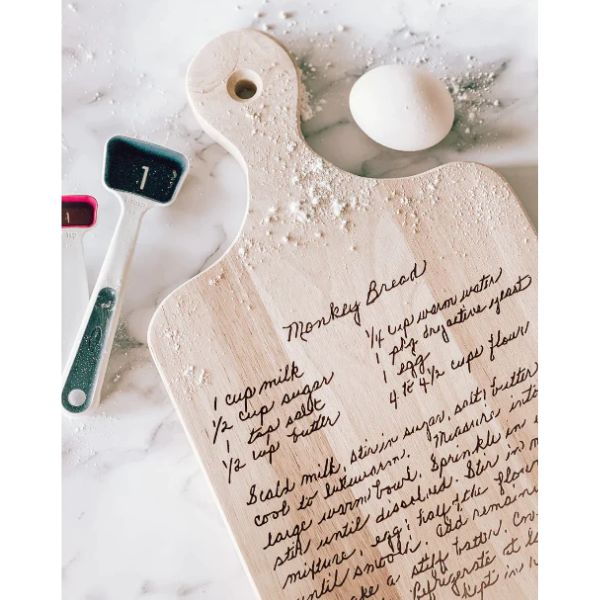 1
Monkey Bread
1 cup milk
1/2 cup sugar
1 tsp salt
1/2 cup butter
1/4 cup warm water
1 pkg dry active yeast
1 egg
4 to 4 1/2 cups flour
Scald milk, stir in sugar, salt, butter
cool to lukewarm. Measure into
large warm bowl. Sprinkle in
stir until dissolved. Stir in
mixture, egg, half of the flour
until smooth. Add remaining
a stiff batter.
Refrigerate at
kept in